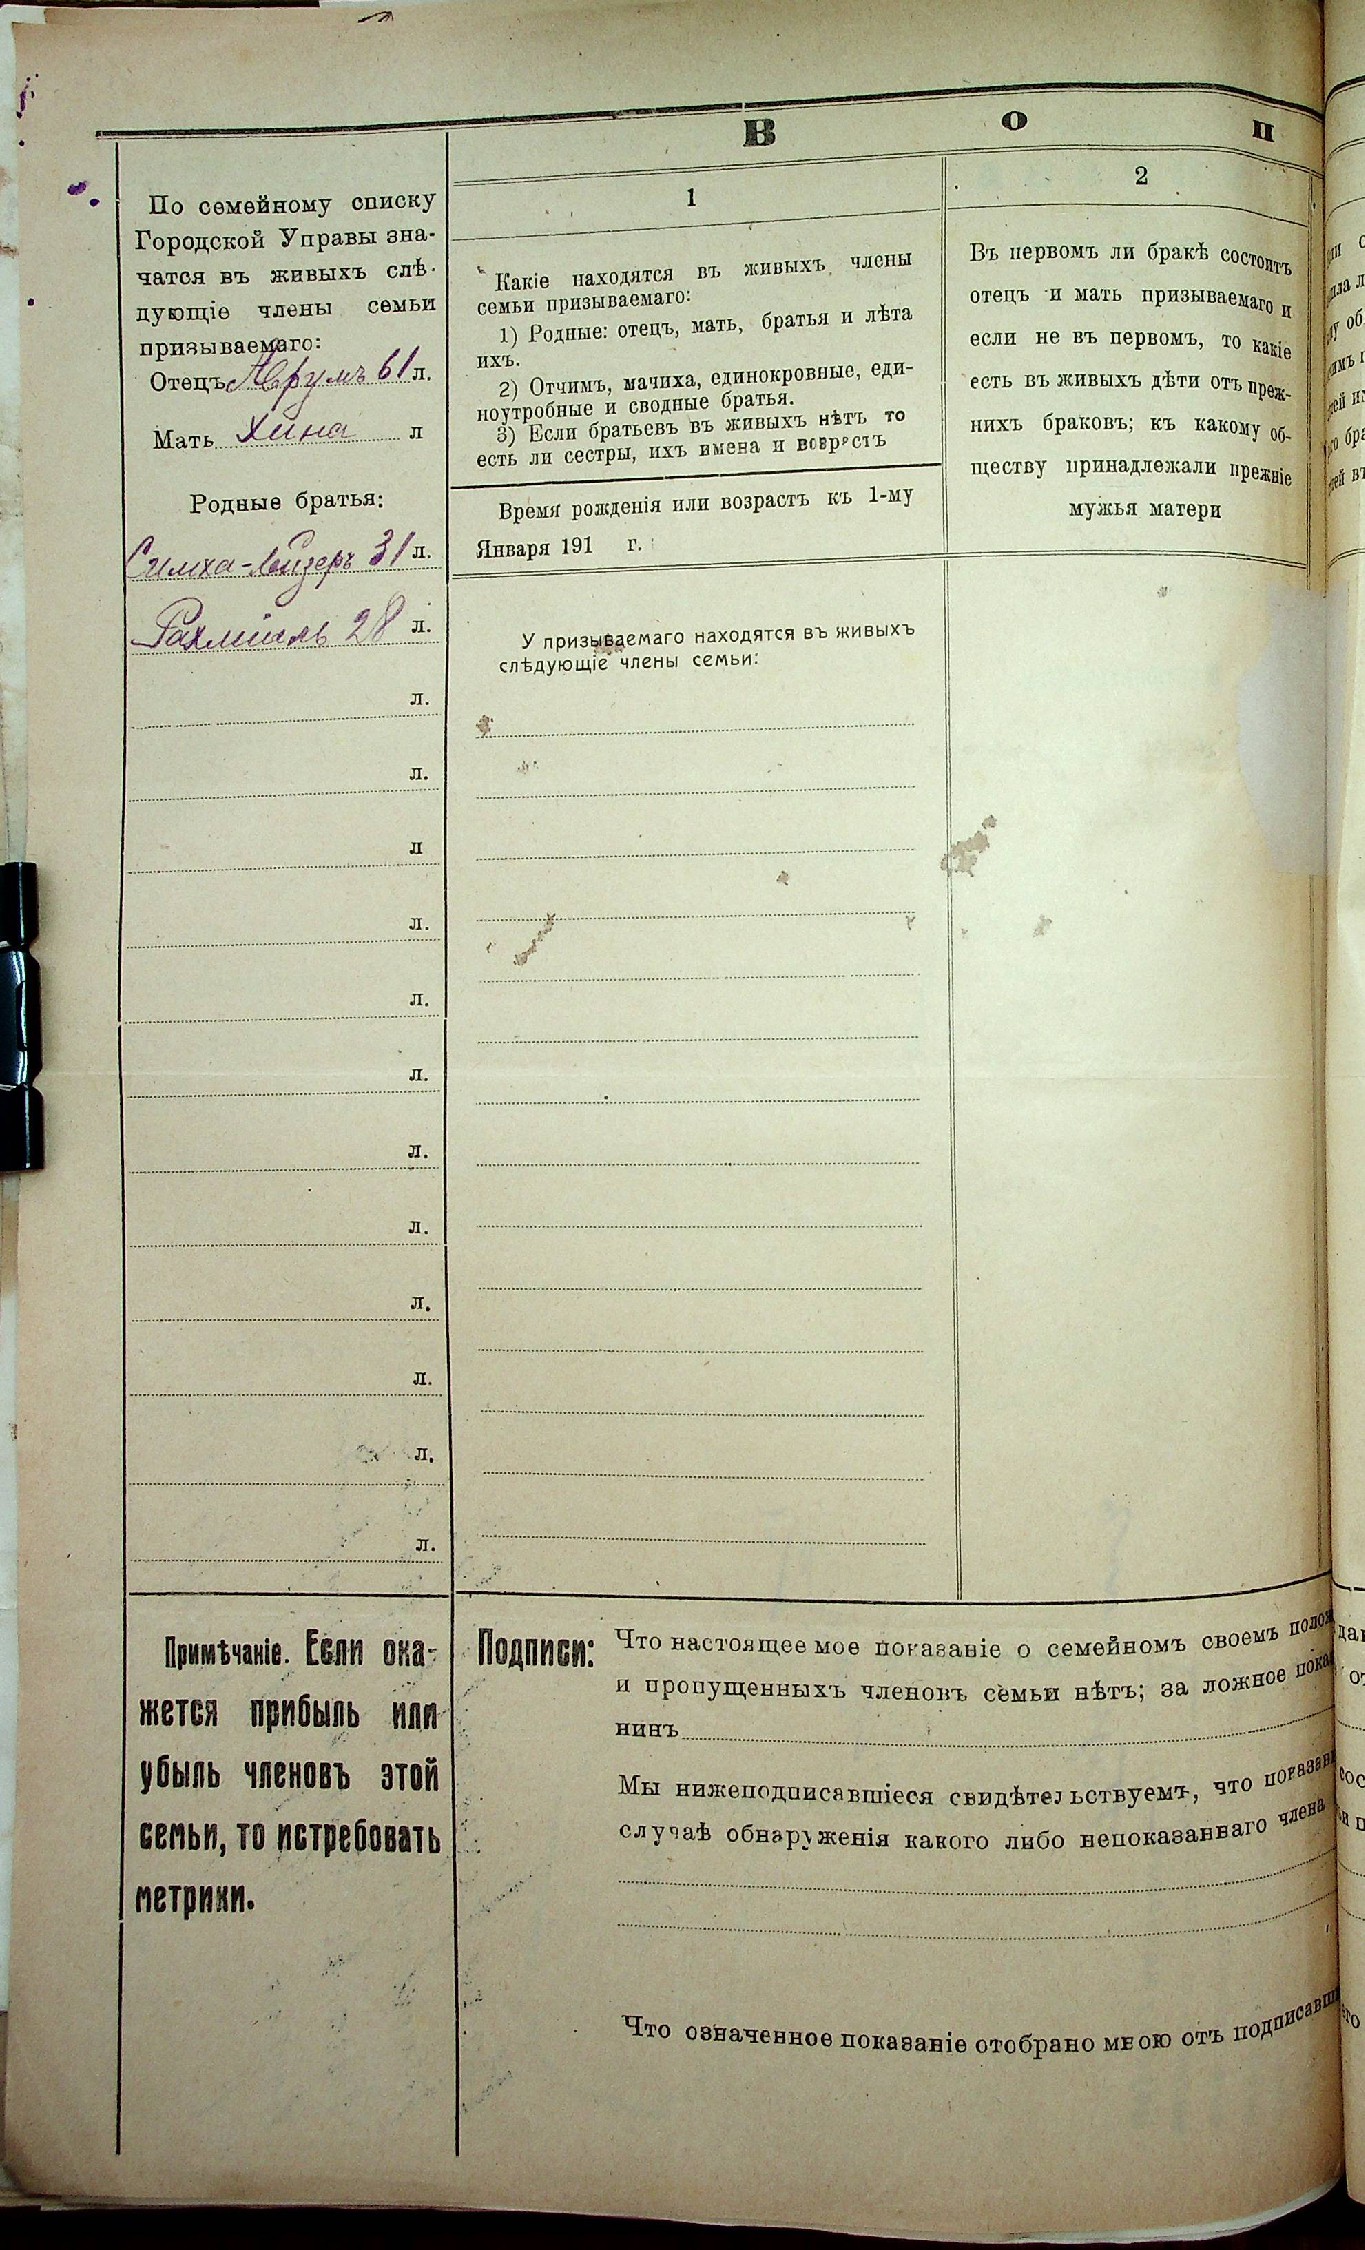 В о п
По семейному списку
Городской Управы зна-
чатся въ живыхъ слѣ-
дующіе члены семьи
призываемаго:
Отецъ Аврумъ 61 л.
Мать Хина л
Родные братья:
Симха-Лейзеръ 31 л.
Рахміиль 28 л.
л.
л.
л
л.
л.
л.
л.
л.
л.
л.
л.
л.
Примѣчаніе. Если ока-
жется прибыль или
убыль членовъ этой
семьи, то истребовать
метрики.
1
Какіе находятся въ живыхъ члены
семьи призываемаго:
1) Родные: отецъ, мать, братья и лѣта
ихъ.
2) Отчимъ, мачиха, единокровные, еди-
ноутробные и сводные братья.
3) Если братьевъ въ живыхъ нѣтъ то
есть ли сестры, ихъ имена и возрастъ
Время рожденія или возрастъ къ 1-му
Января 191 г.
У призываемаго находятся въ живыхъ
слѣдующіе члены семьи:
2
Въ первомъ ли бракѣ состоитъ
отецъ и мать призываемаго и
если не въ первомъ, то какіе
есть въ живыхъ дѣти отъ преж-
нихъ браковъ; къ какому об-
ществу принадлежали прежніе
мужья матери
Подписи: Что настоящее мое показаніе о семейномъ своемъ полож
и пропущенныхъ членовъ семьи нѣтъ; за ложное пока
нинъ
Мы нижеподписавшіеся свидѣтельствуемъ, что показані
случаѣ обнаруженія какого либо непоказаннаго члена
Что означенное показаніе отобрано мною отъ подписавш